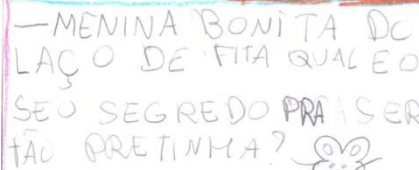 —MENINA BONITA DO
LAÇO DE FITA QUAL E O
SEU SEGREDO PRA SER
TÃO PRETINHA?